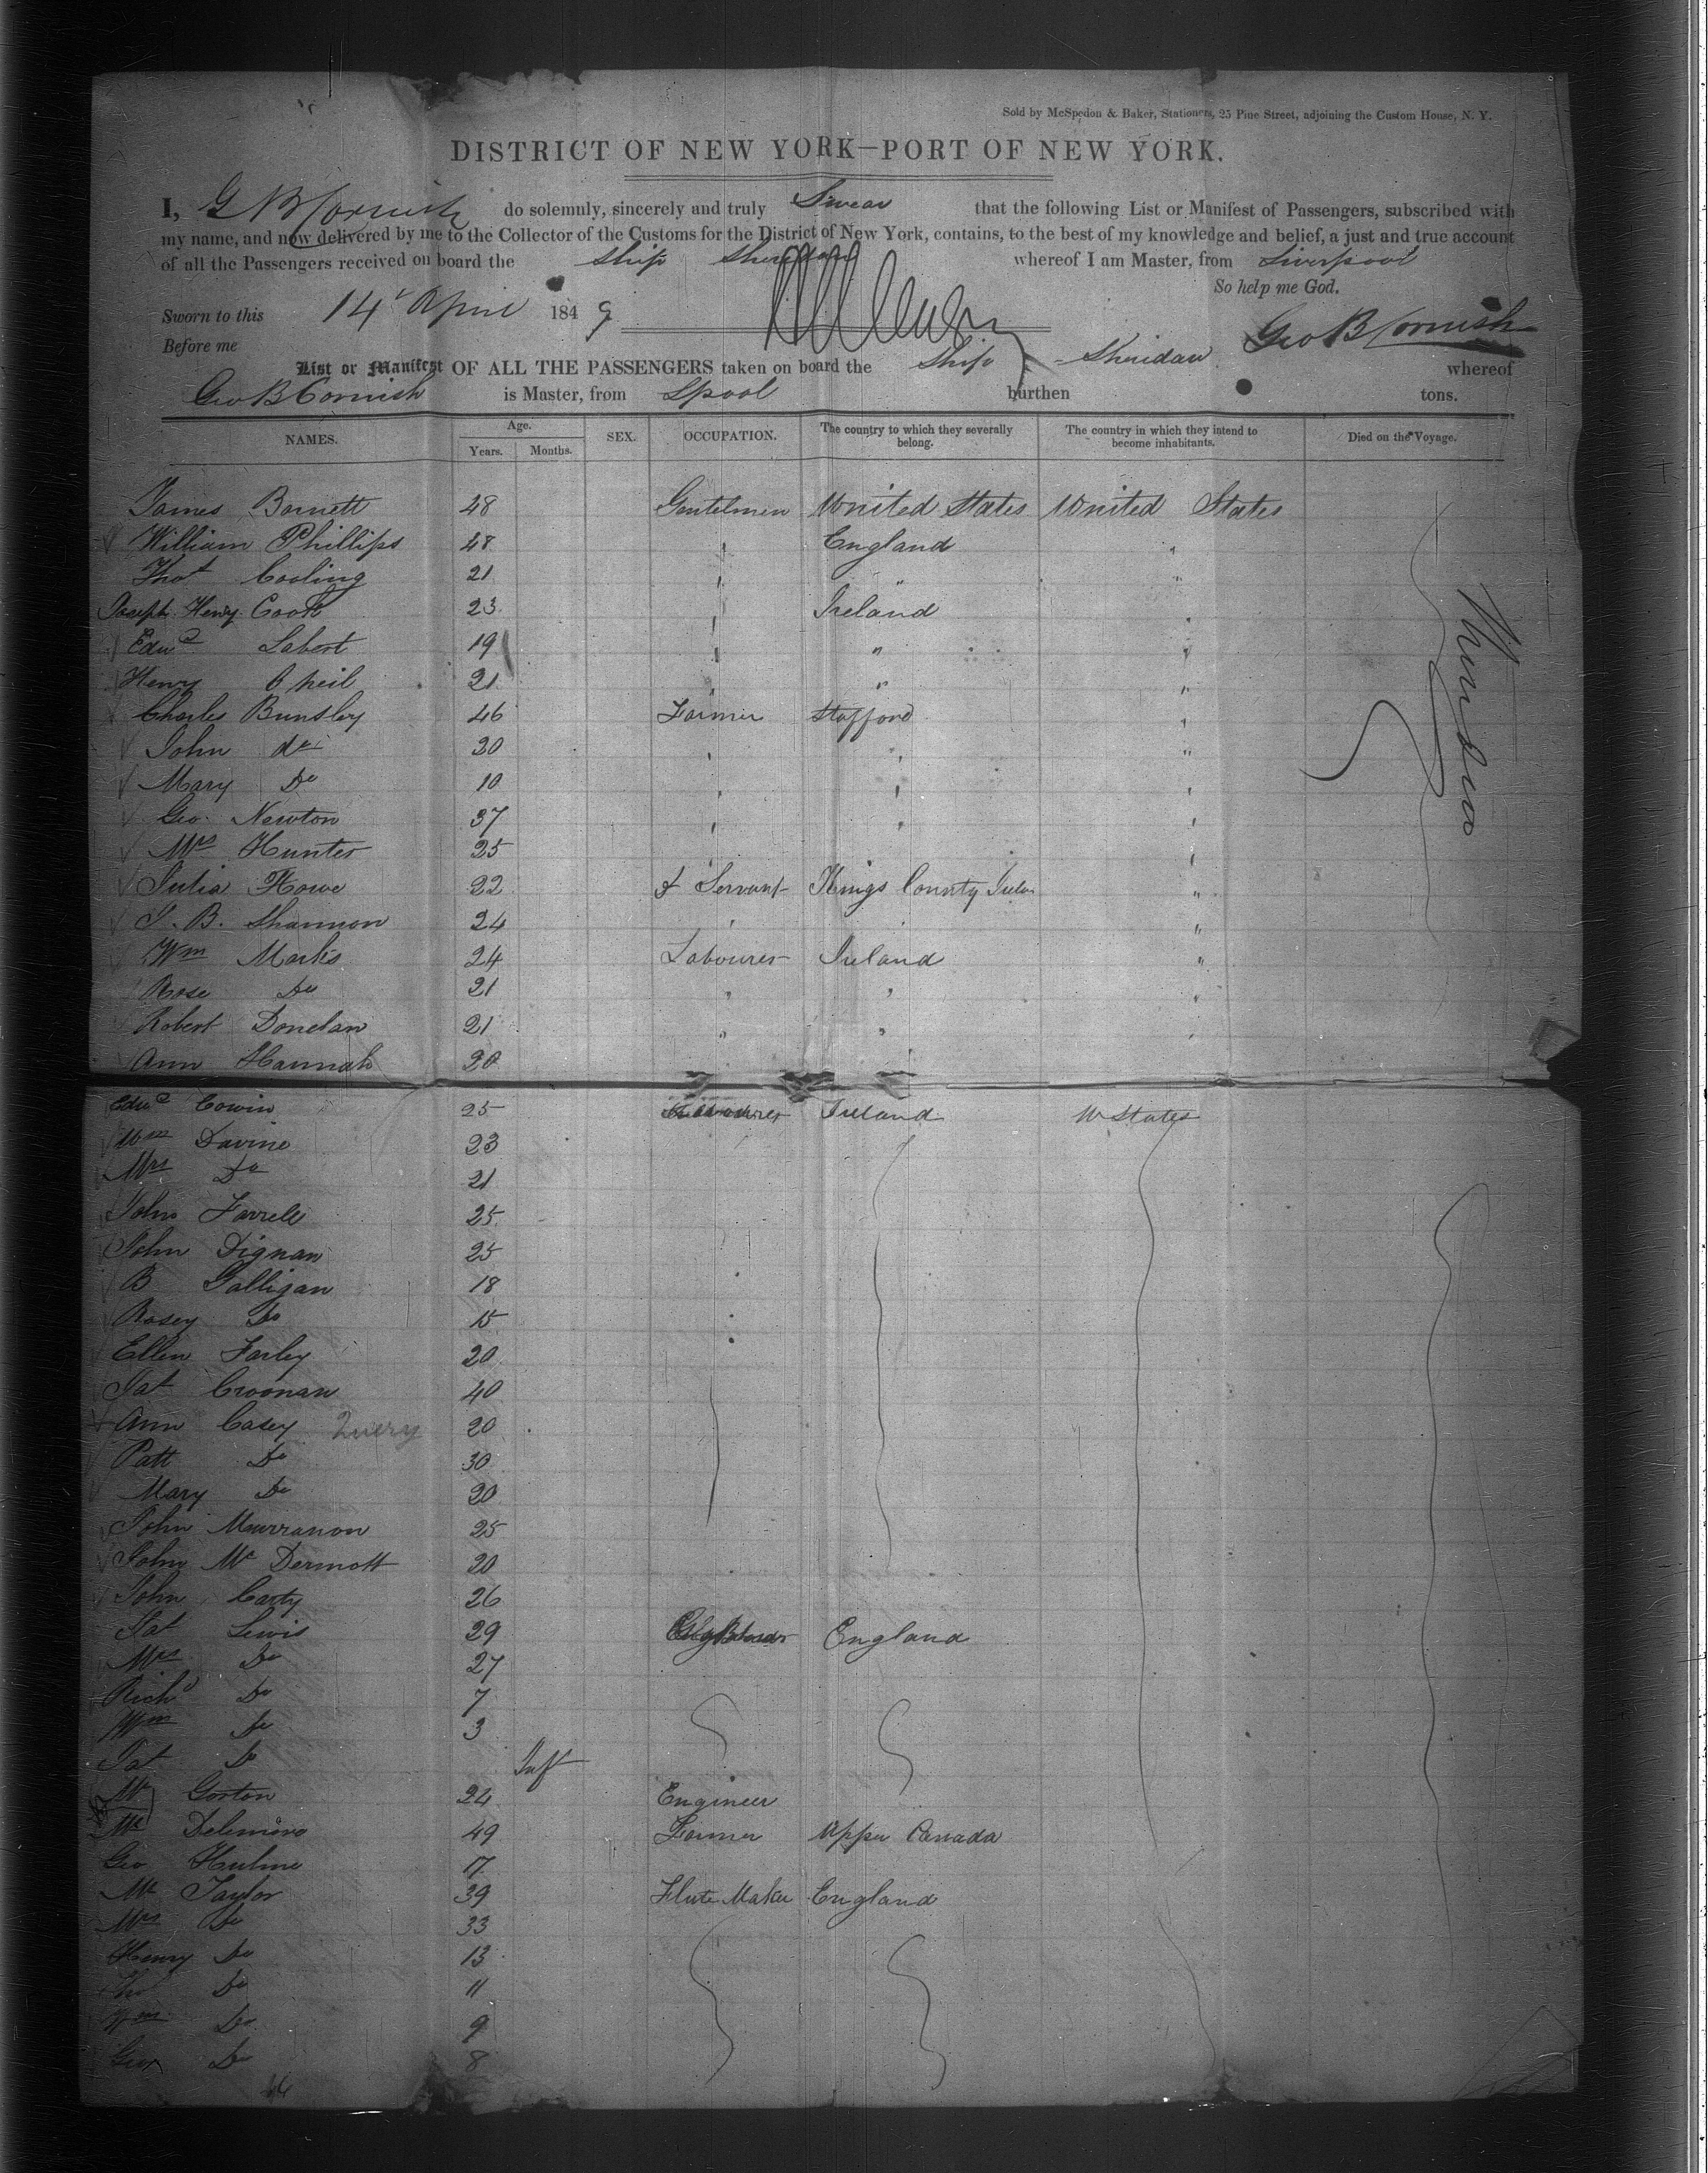 Sold by McSpedon & Baker, Stationers, 25 Pine Street, adjoining the Custom House, N. Y.
DISTRICT OF NEW YORK—PORT OF NEW YORK.
I, G B Cornish do solemnly, sincerely and truly Swear that the following List or Manifest of Passengers, subscribed with
my name, and now delivered by me to the Collector of the Customs for the District of New York, contains, to the best of my knowledge and belief, a just and true account
of all the Passengers received on board the Ship Sheridan whereof I am Master, from Liverpool
So help me God.
Sworn to this 14 April 1849
Before me Geo B Cornish
List or Manifest OF ALL THE PASSENGERS taken on board the Ship Sheridan whereof
Geo B Cornish is Master, from Lpool burthen tons.
NAMES. Age. Years. Months. SEX. OCCUPATION. The country to which they severally belong. The country in which they intend to become inhabitants. Died on the Voyage.
James Barnett 48 Gentelmen United States United States
William Phillips 48 " England "
Thos Cooling 21 " " "
Joseph Henry Cook 23 " Ireland "
Edwd Labert 19 " " "
Henry O neil 21 " " "
Charles Bunsley 46 Farmer Stafford "
John do 20 " " "
Mary Do 10 " " "
Geo. Newton 37 " " "
Mrs Hunter 25 "
Julia Howe 22 Servant Kings County "
J. B. Shannon 24 " "
Wm Marks 24 Labourer Ireland "
Rose Do 21 " " "
Robert Donelan 21 " " "
Ann Hannah 20
Edwd Cowin 25 Labourer Ireland U States
Wm Davine 23
Mrs Do 21
John Farrell 25
John Dignan 25
B Galligan 18
Rosey Do 15
Ellen Farley 20
Pat Croonan 40
Ann Casey Query 20
Patt Do 30
Mary Do 20
John Murranon 25
John Mc Dermott 20
John Carty 26
Pat Lewis 29 England
Mrs Do 27
Richd Do 7
Wm Do 3
Pat Do Inft
Mr Gorton 24 Engineer
Mr Delemore 49 Farmer Upper Canada
Geo Hulme 17
Mr Taylor 39 Flute Maker England
Mrs Do 33
Henry Do 13
Tho Do 11
Wm Do 9
Geo Do 8